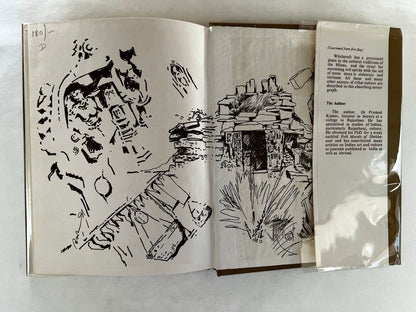 180/-
D
(Continued from first flap)
Witchcraft has a prominent
place in the cultural traditions of
the Minas, and the ritual for
exorcising evil spirits with the aid
of stone slates is elaborate and
intricate. All these and many
other aspects of tribal culture are
described in this absorbing mono-
graph.
The Author
The author, Dr Pramod
Kumar, lectures in history at a
college in Rajasthan. He has
specialized in studies of Indian,
particularly Rajasthani, culture.
He obtained his PhD for a study
entitled Folk Murals of Shekha-
wati and has contributed many
articles on Indian art and culture
to journals published in India as
well as abroad.